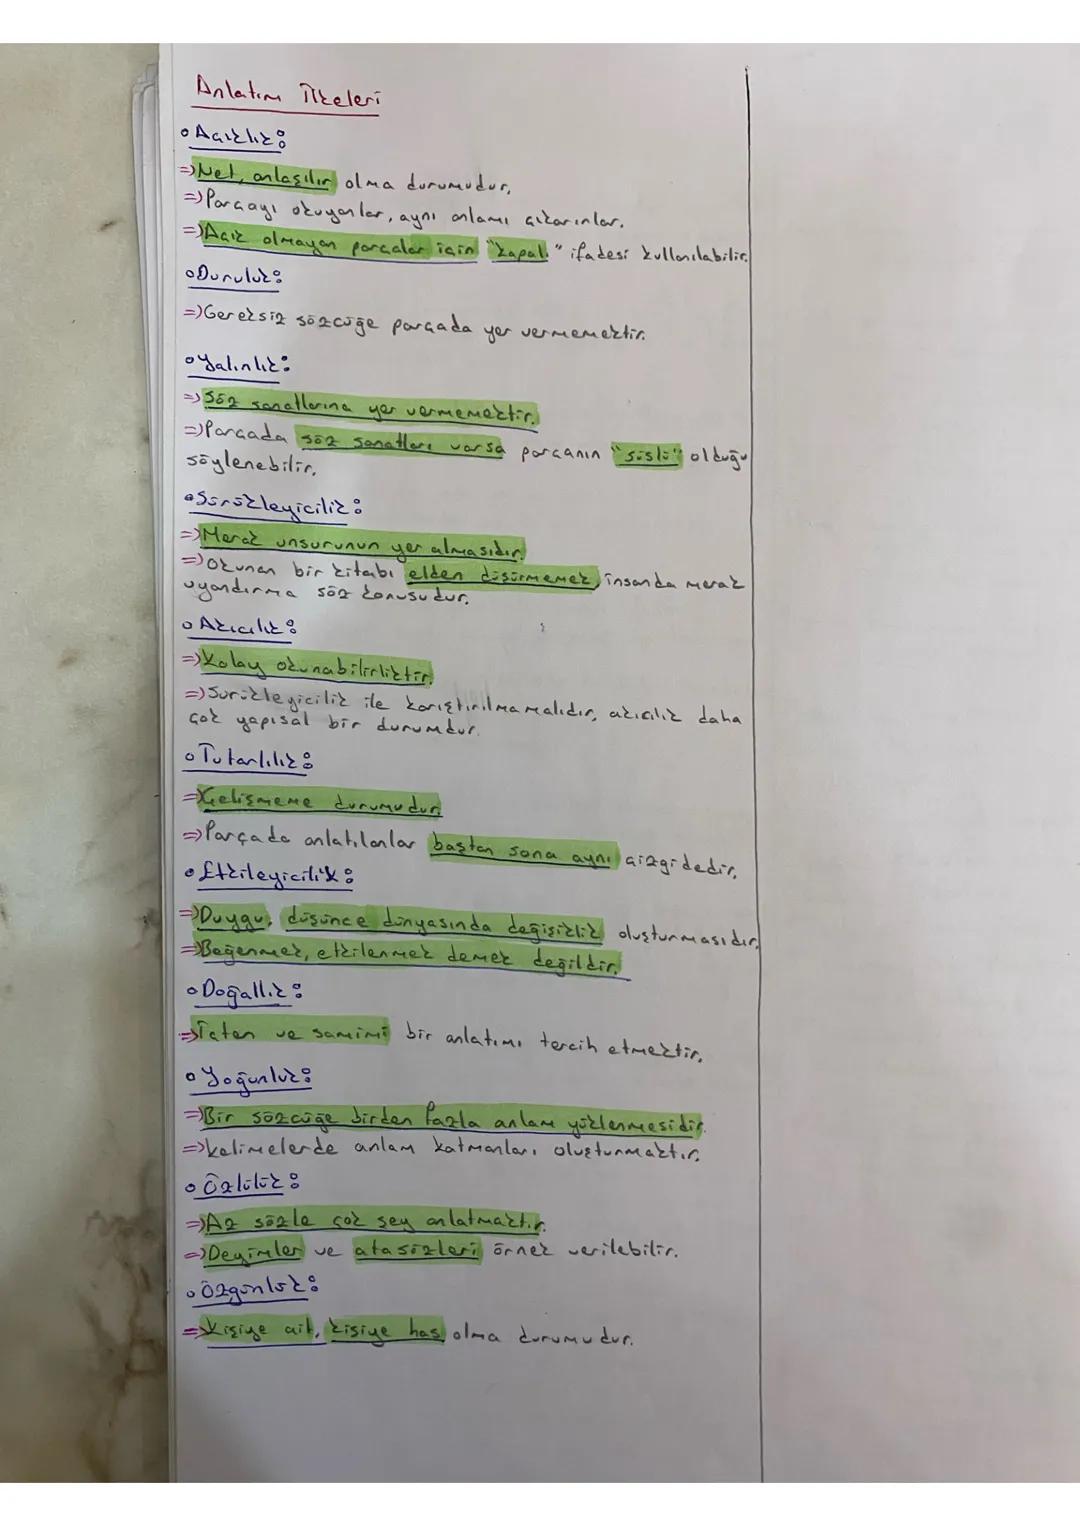 Anlatım İlkeleri
• Açıklık:
⇒ Net, anlaşılır olma durumudur.
⇒ Parçayı okuyanlar, aynı anlamı çıkarırlar.
⇒ Açık olmayan parçalar için "kapalı" ifadesi kullanılabilir.
• Duruluk:
⇒ Gereksiz sözcüğe parçada yer vermemektir.
• Yalınlık:
⇒ Söz sanatlarına yer vermemektir.
⇒ Parçada söz sanatları varsa parçanın "süslü" olduğu
söylenebilir.
• Sürükleyicilik:
⇒ Merak unsurunun yer almasıdır.
⇒ Okunan bir kitabı elden düşürmemek, insanda merak
uyandırma söz konusudur.
• Akıcılık:
⇒ Kolay okunabilirliktir.
⇒ Sürükleyicilik ile karıştırılmamalıdır, akıcılık daha
çok yapısal bir durumdur.
• Tutarlılık:
⇒ Çelişmeme durumudur.
⇒ Parçada anlatılanlar baştan sona aynı çizgidedir.
• Etkileyicilik:
⇒ Duygu, düşünce dünyasında değişiklik oluşturmasıdır.
⇒ Beğenmek, etkilenmek demek değildir.
• Doğallık:
⇒ İçten ve samimi bir anlatımı tercih etmektir.
• Yoğunluk:
⇒ Bir sözcüğe birden fazla anlam yüklenmesidir.
⇒ Kelimelerde anlam katmanları oluşturmaktır.
• Özlülük:
⇒ Az sözle çok şey anlatmaktır.
⇒ Deyimler ve atasözleri örnek verilebilir.
• Özgünlük:
⇒ Kişiye ait, kişiye has olma durumudur.